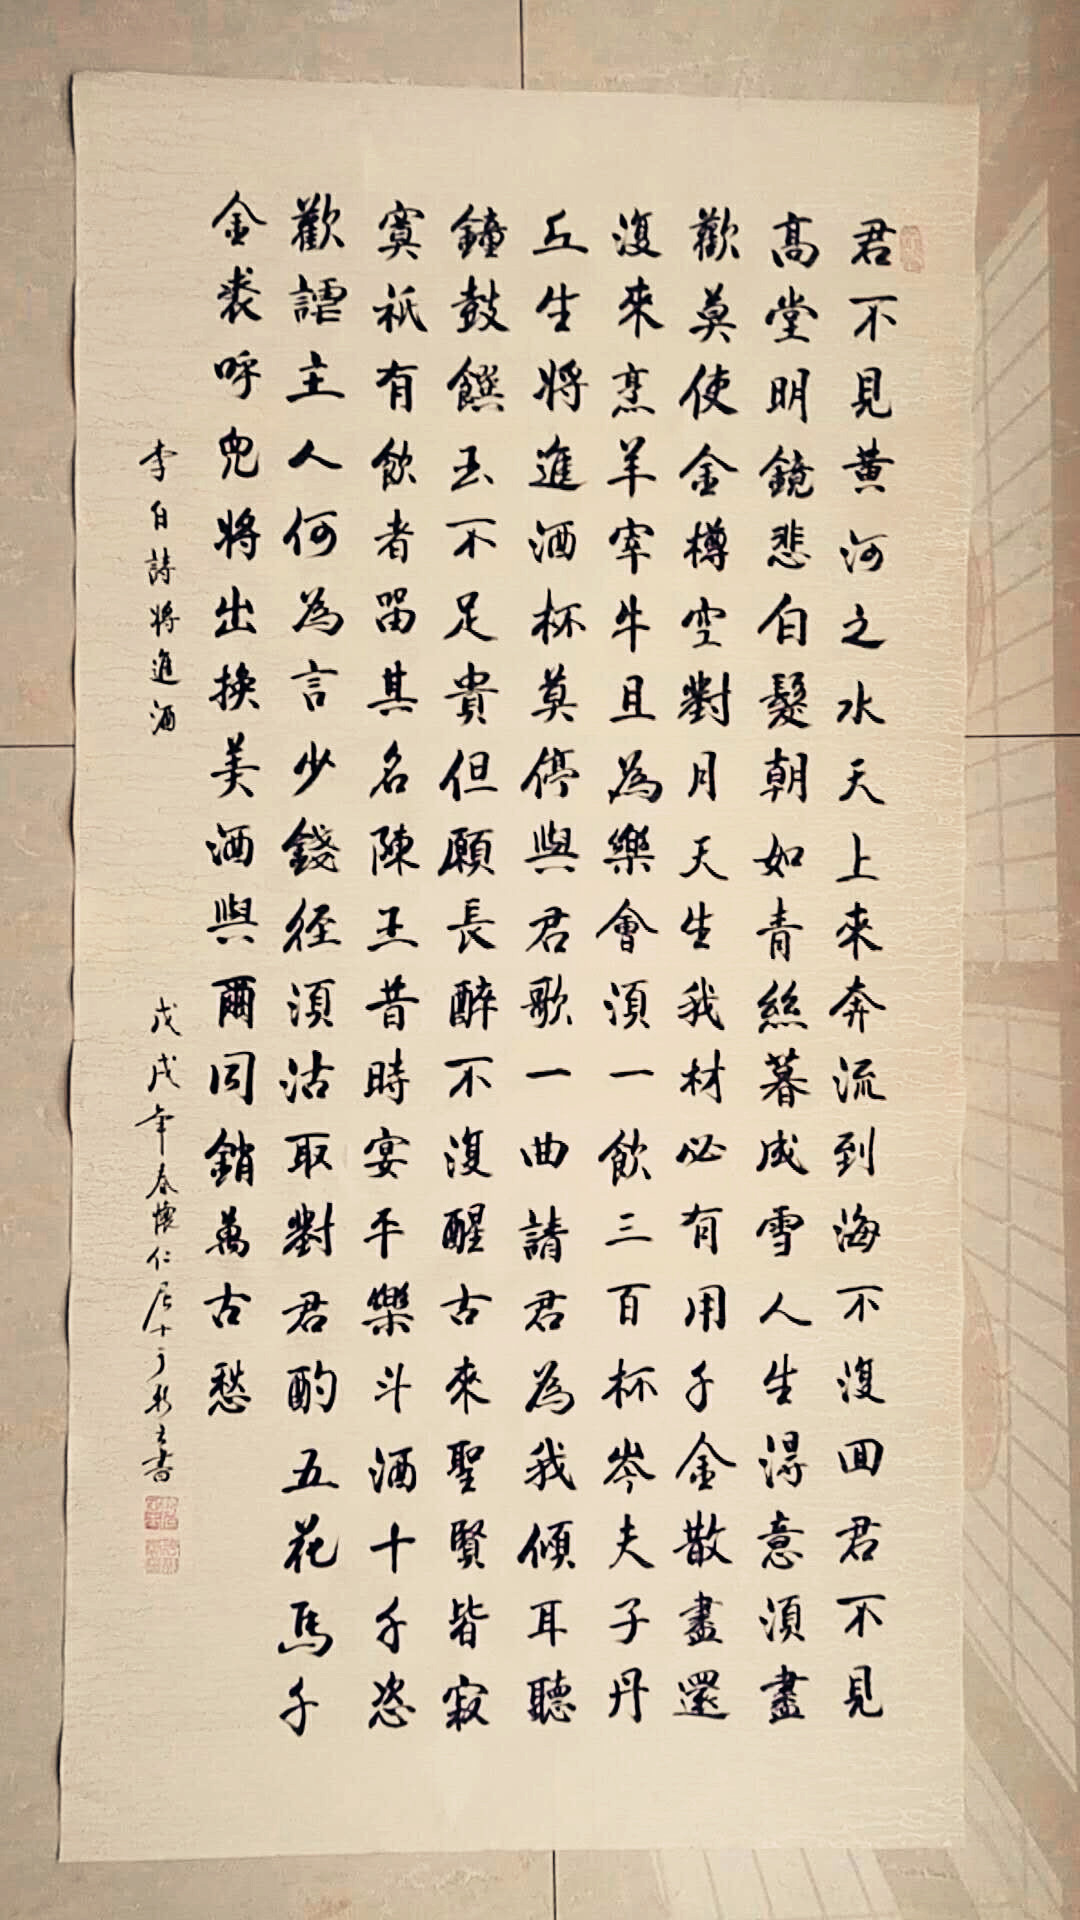 君不見黃河之水天上來奔流到海不復回君不見
高堂明鏡悲白髮朝如青絲暮成雪人生得意須盡
歡莫使金樽空對月天生我材必有用千金散盡還
復來烹羊宰牛且為樂會須一飲三百杯岑夫子丹
丘生將進酒杯莫停與君歌一曲請君為我傾耳聽
鐘鼓饌玉不足貴但願長醉不復醒古來聖賢皆寂
寞祇有飲者留其名陳王昔時宴平樂斗酒十千恣
歡謔主人何為言少錢徑須沽取對君酌五花馬千
金裘呼兒將出換美酒與爾同銷萬古愁
李白詩將進酒
戊戌年春懷仁居 書